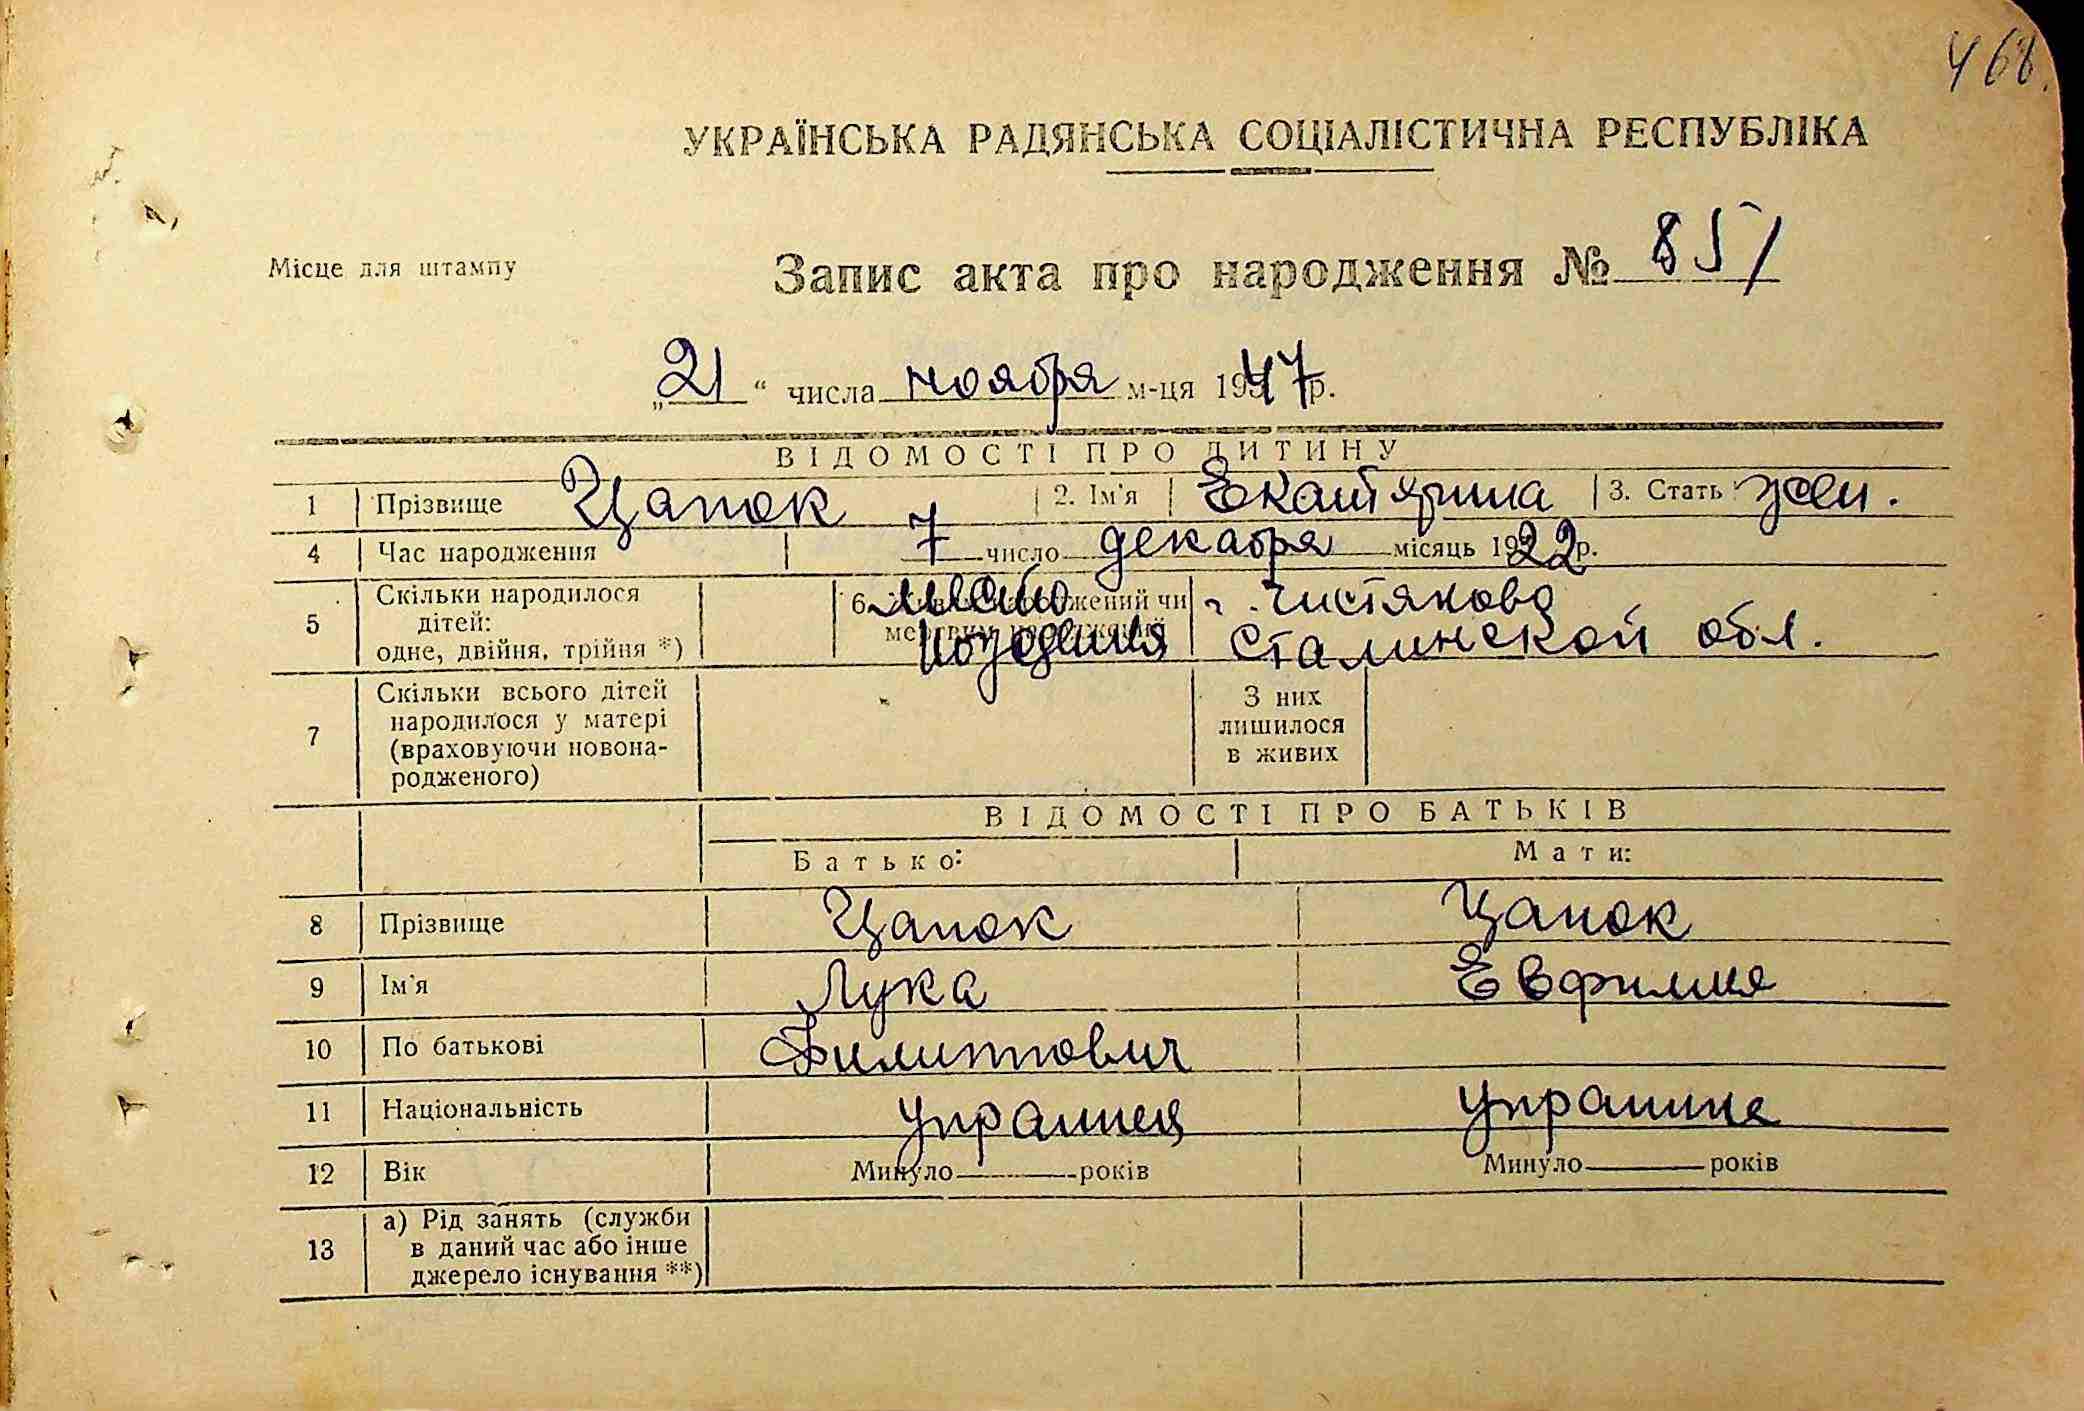 468.
УКРАЇНСЬКА РАДЯНСЬКА СОЦІАЛІСТИЧНА РЕСПУБЛІКА
Місце для штампу
Запис акта про народження № 857
„21“ числа ноября м-ця 1947р.
ВІДОМОСТІ ПРО ДИТИНУ
1 Прізвище Цапок 2. Ім'я Екатярина 3. Стать жен.
4 Час народження 7 число декабря місяць 1922р.
5 Скільки народилося дітей: одне, двійня, трійня *) 6. место рождения г. Чистяково Сталинской обл.
7 Скільки всього дітей народилося у матері (враховуючи новонародженого) З них лишилося в живих
ВІДОМОСТІ ПРО БАТЬКІВ
Батько: Мати:
8 Прізвище Цапок Цапок
9 Ім'я Лука Евфимия
10 По батькові Филиппович
11 Національність украинец украинка
12 Вік Минуло років Минуло років
13 а) Рід занять (служби в даний час або інше джерело існування **)